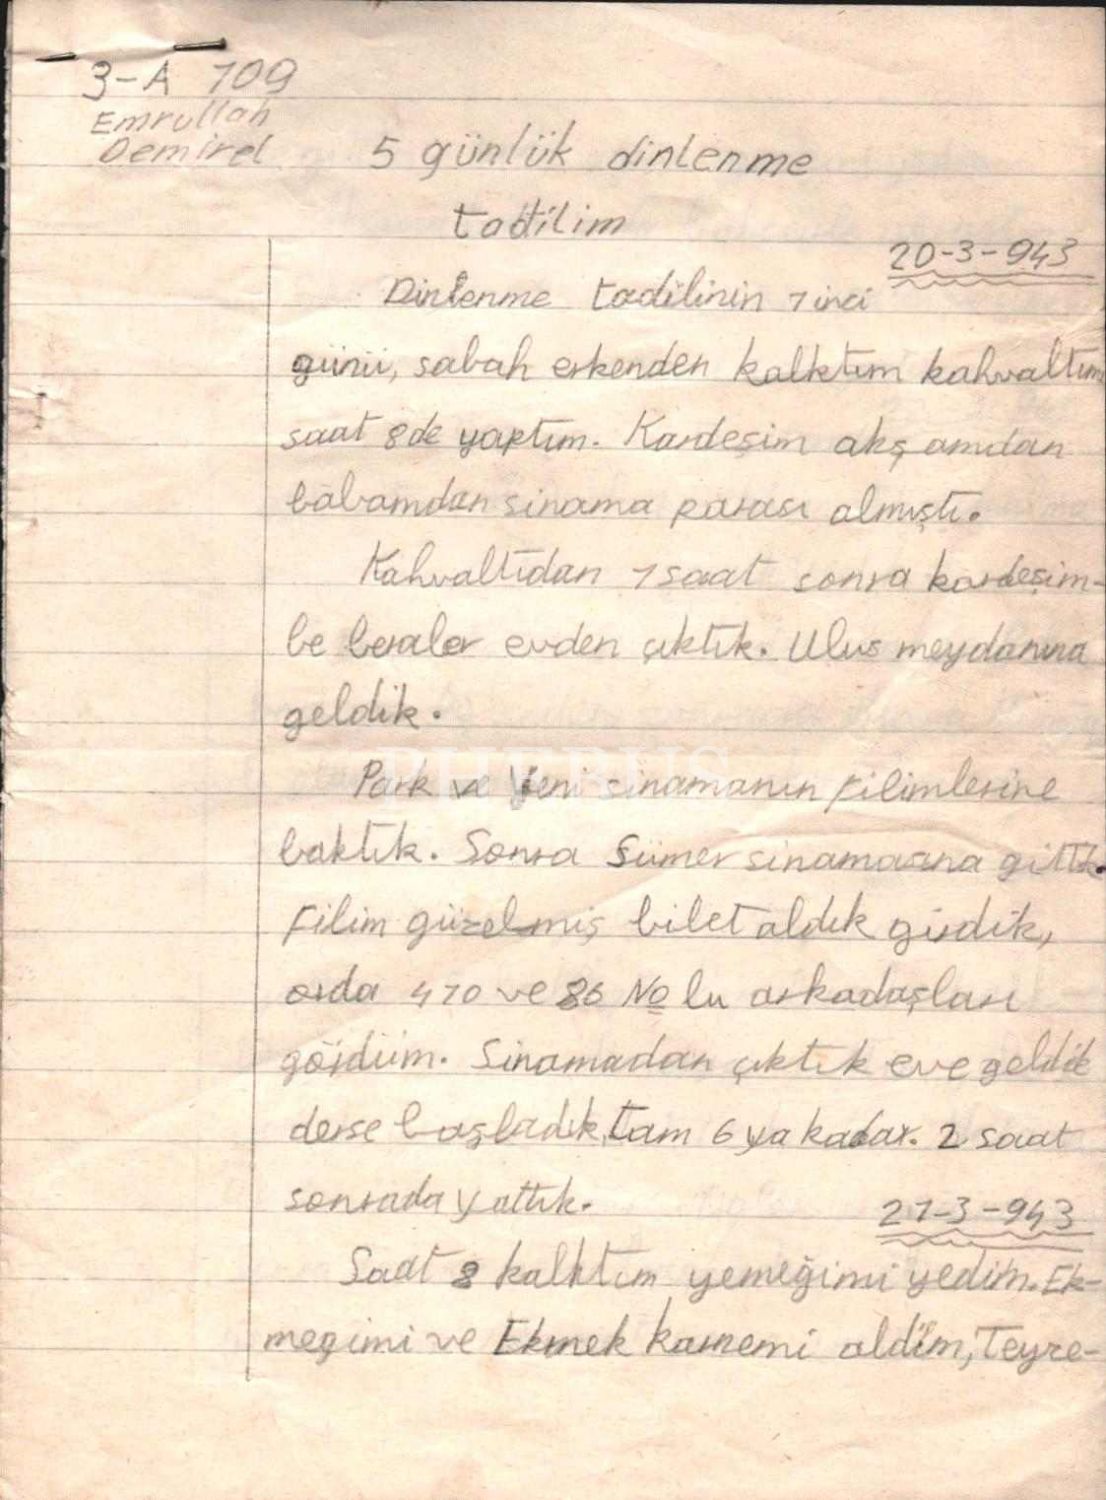 3-A 109
Emrullah
Demirel
5 günlük dinlenme
tadilim
20-3-943
Dinlenme tadilinin 1 inci
günü, sabah erkenden kalktım kahvaltımı
saat 8 de yaptım. Kardeşim akşamdan
babamdan sinama parası almıştı.
Kahvaltıdan 1 saat sonra kardeşim-
le beraber evden çıktık. Ulus meydanına
geldik.
PHEBUS
Park ve Yeni sinamanın filimlerine
baktık. Sonra Sümer sinamasına gittik.
Filim güzelmiş bilet aldık girdik,
orda 470 ve 86 No lu arkadaşları
gördüm. Sinamadan çıktık eve geldik
derse başladık, tam 6 ya kadar. 2 saat
sonrada yattık.
21-3-943
Saat 8 kalktım yemeğimi yedim. Ek-
megimi ve Ekmek karnemi aldım, Teyze-